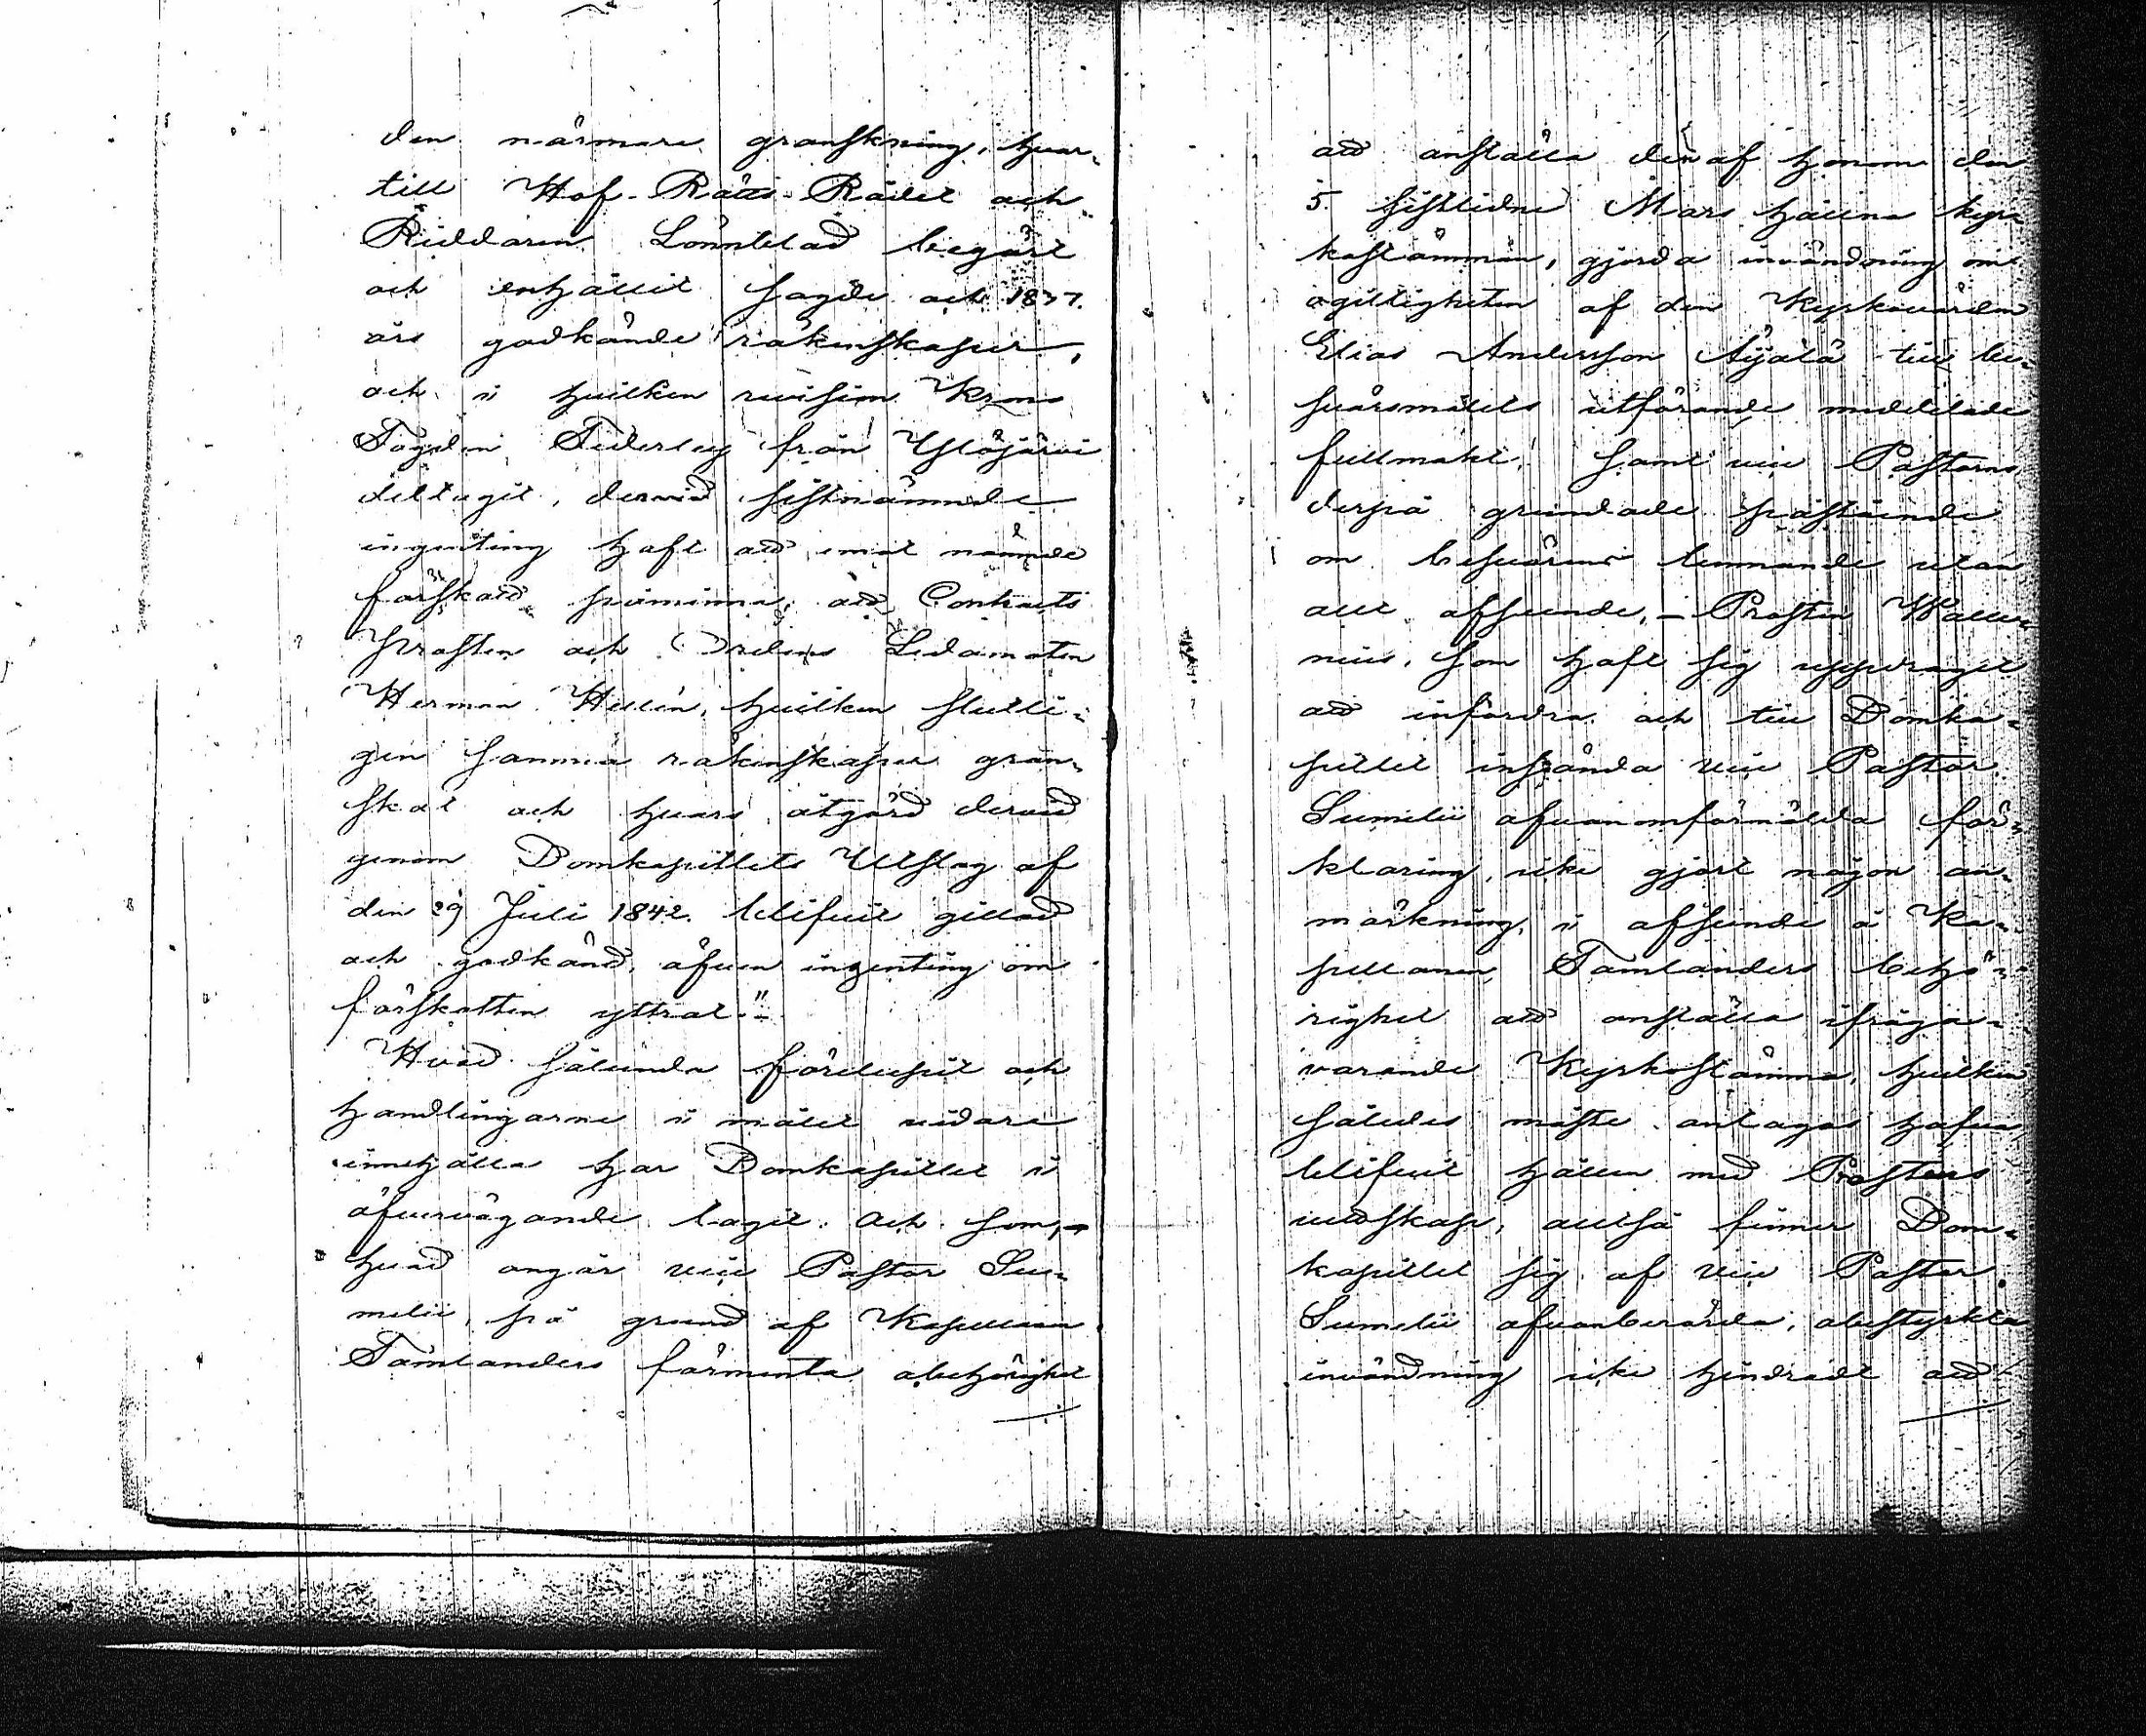 den närmare granskning, hvar-
till Hof-Rätts-Rådet och
Riddaren Lönnblad begärt
och erhållit sagde och 1837.
års godkände räkenskaper,
och i hvilken revision Krono
Fogden Federley från Ylöjärvi
deltagit, dervid sistnämnde
ingenting haft att emot nämnde
förskott påminna, att Contracts
Prosten och Ordens Ledamoten
Herman Hellén, hvilken slutli-
gen samma räkenskaper gran-
skat och hvars åtgärd dervid
genom Domkapitlets Utslag af
den 29 Juli 1842. blifvit gillad
och godkänd, äfven ingenting om
förskotten yttrat."
Hvad sålunda förelupit och
handlingarne i målet vidare
innehålla har Domkapitlet i
öfvervägande tagit. Och som,
hvad angår vice Pastor Su-
melii, på grund af Kapellan
Tamlanders förmenta obehörighet
att anställa den af honom den
5 sistlidne Mars hållna kyr-
kostämman, gjorda invändning om
ogiltigheten af den Kyrkovärden
Elias Andersson Äijälä till be-
svärsmålets utförande meddelade
fullmakt, samt vice Pastorns
derpå grundade påstående
om besvärens lemnande utan
allt afseende, – Prosten Walle-
nius, som haft sig uppdraget
att infordra och till Domka-
pitlet insända vice Pastor
Sumelii ofvanomförmälda för-
klaring, icke gjort någon an-
märkning, i afseende å Ka-
pellanen Tamlanders behö-
righet att anställa ifråga-
varande Kyrkostämma, hvilken
således måste antagas hafva
blifvit hållen med Prostens
vetskap, alltså finner Dom-
kapitlet sig af vice Pastor
Sumelii ofvanberörda, obestyrkta
invändning icke hindradt att